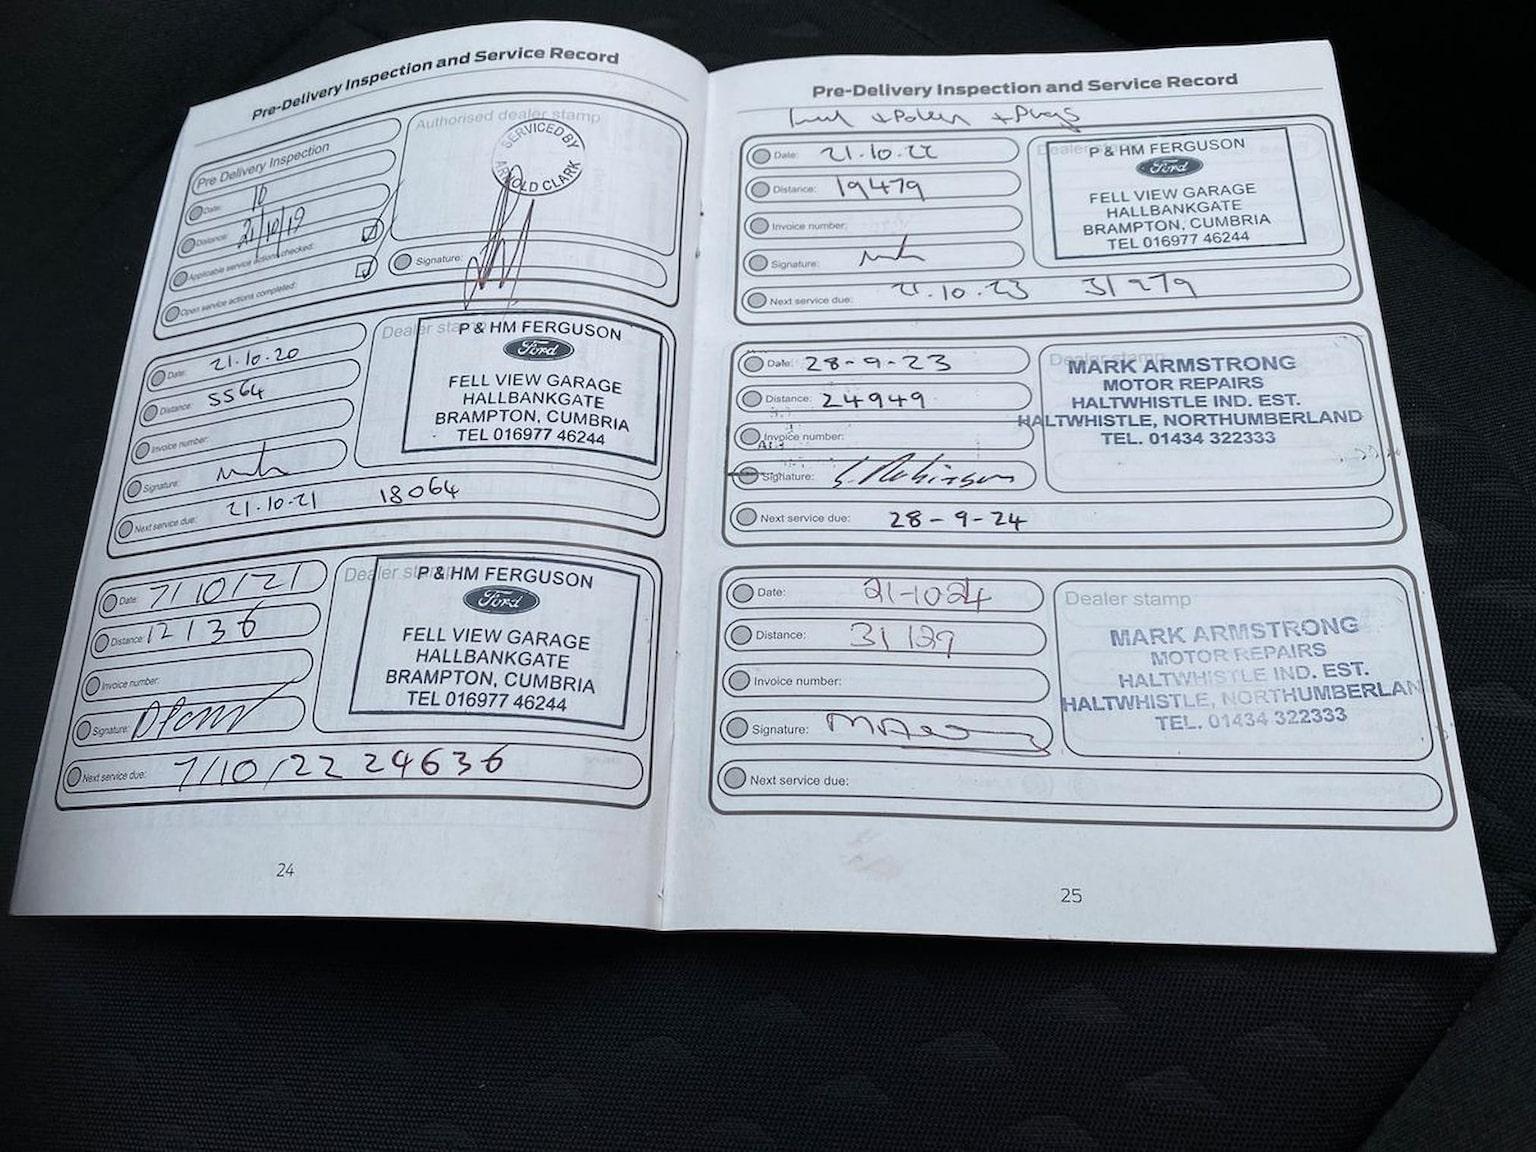 Pre-Delivery Inspection and Service Record
Pre Delivery Inspection
Date: 10
Distance: 21/10/19
Applicable service actions checked:
Open service actions completed:
Authorised dealer stamp
SERVICED BY
ARNOLD CLARK
Signature:
Date: 21.10.20
Distance: 5564
Invoice number:
Signature:
Next service due: 21.10.21 18064
Dealer stamp
P & HM FERGUSON
Ford
FELL VIEW GARAGE
HALLBANKGATE
BRAMPTON, CUMBRIA
TEL 016977 46244
Date: 7/10/21
Distance: 12136
Invoice number:
Signature:
Next service due: 7/10/22 24636
Dealer stamp
P & HM FERGUSON
Ford
FELL VIEW GARAGE
HALLBANKGATE
BRAMPTON, CUMBRIA
TEL 016977 46244
24
Pre-Delivery Inspection and Service Record
+ Pollen + Plugs
Date: 21.10.22
Distance: 19479
Invoice number:
Signature:
Next service due: 21.10.23 31979
Dealer stamp
P & HM FERGUSON
Ford
FELL VIEW GARAGE
HALLBANKGATE
BRAMPTON, CUMBRIA
TEL 016977 46244
Date: 28-9-23
Distance: 24949
Invoice number:
Signature: S. Robinson
Next service due: 28-9-24
Dealer stamp
MARK ARMSTRONG
MOTOR REPAIRS
HALTWHISTLE IND. EST.
HALTWHISTLE, NORTHUMBERLAND
TEL. 01434 322333
Date: 21-10-24
Distance: 31129
Invoice number:
Signature:
Next service due:
Dealer stamp
MARK ARMSTRONG
MOTOR REPAIRS
HALTWHISTLE IND. EST.
HALTWHISTLE, NORTHUMBERLAN
TEL. 01434 322333
25